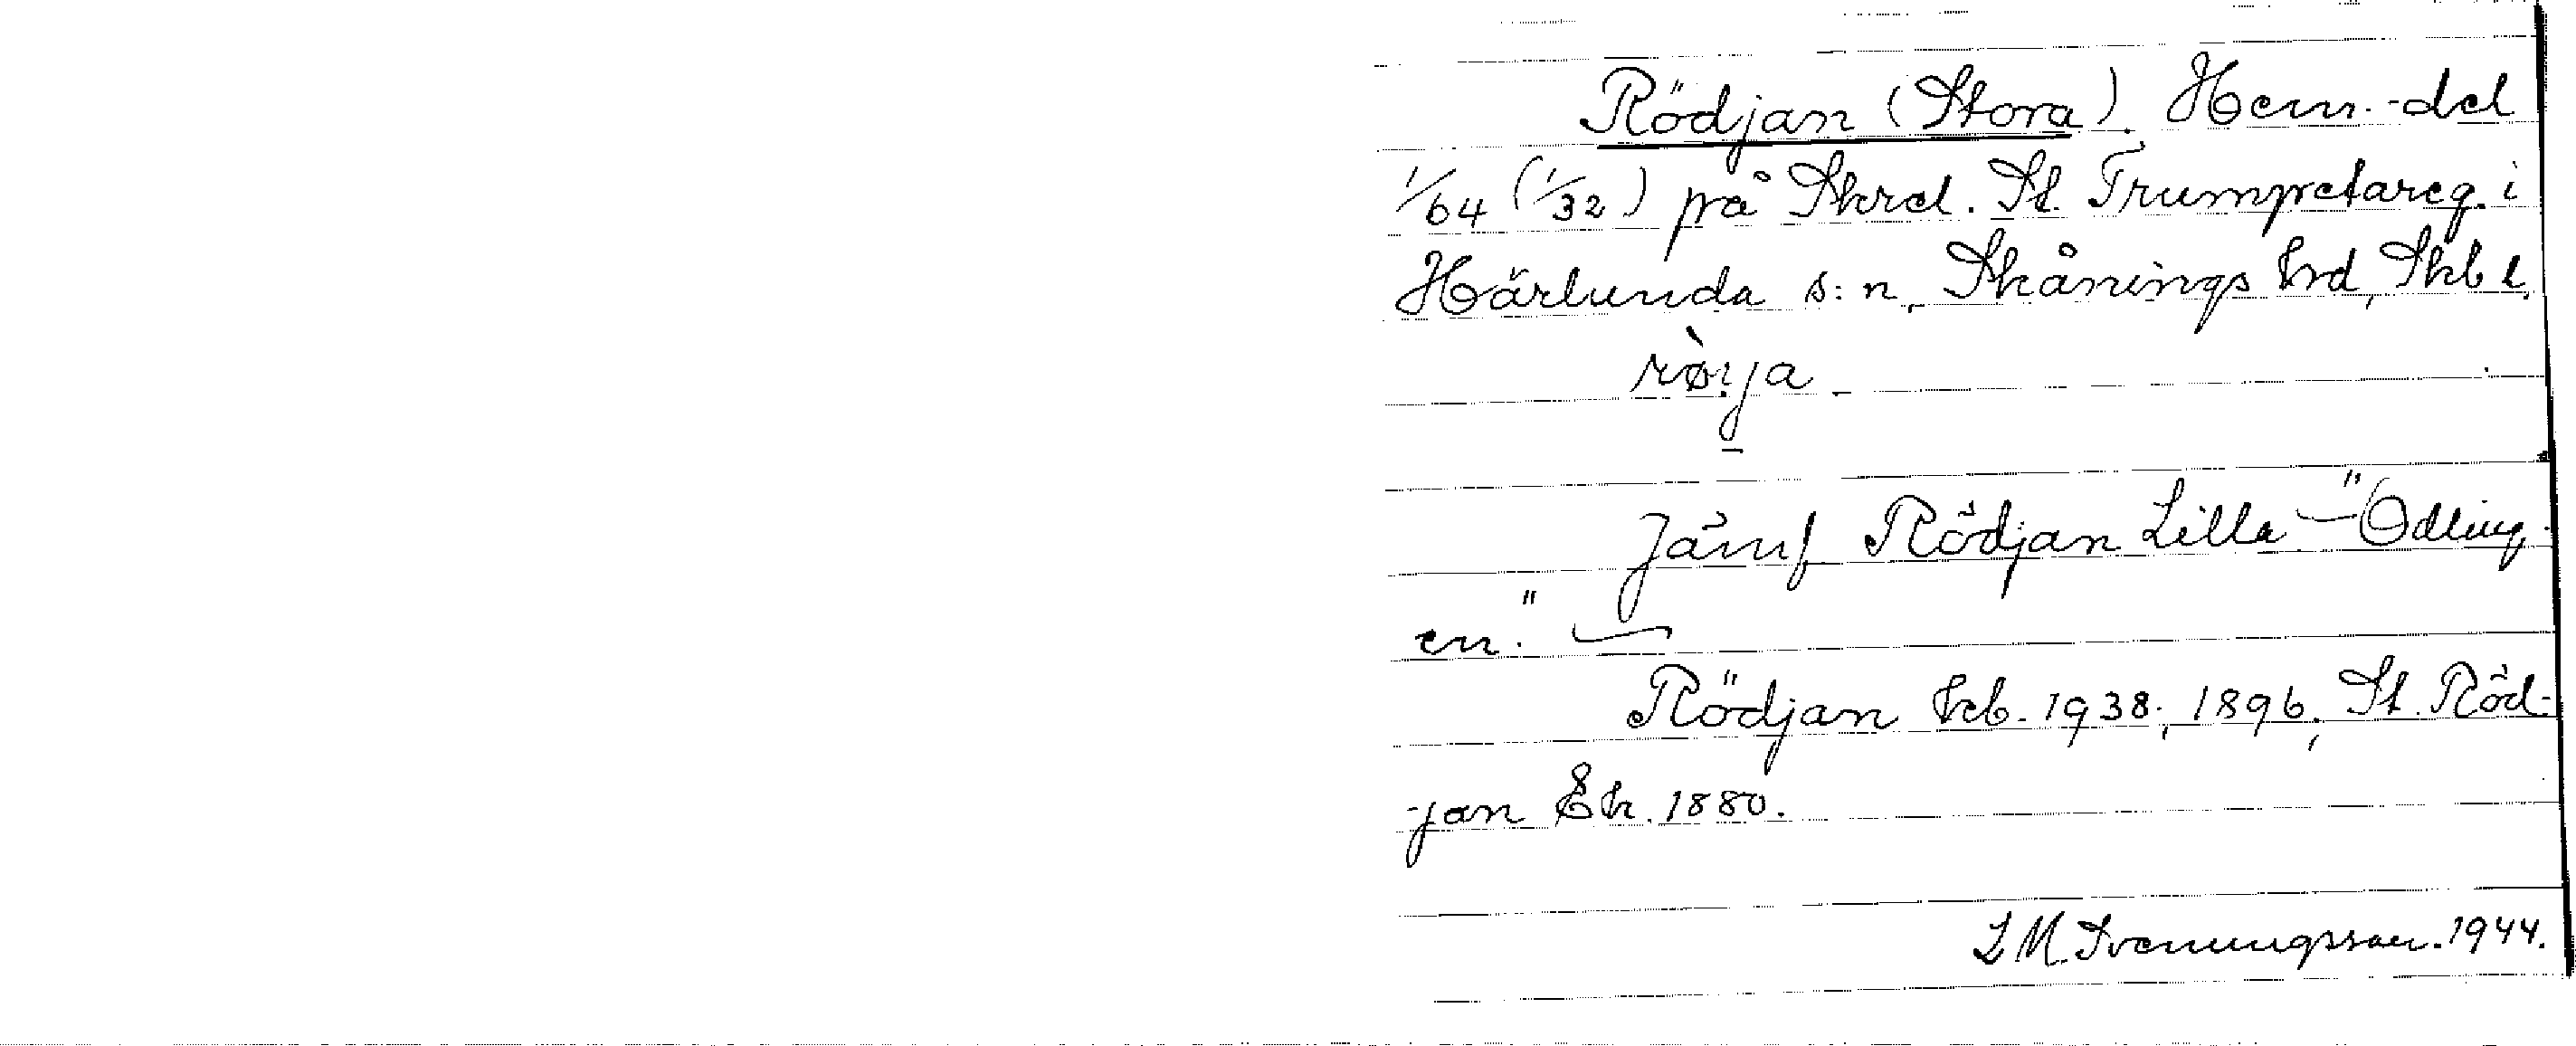 Rödjan (Stora). Hem.-del
1/64 (1/32) på Skrd. St. Trumpetareg. i
Härlunda s:n, Skånings hrd, Skb l.
rò̤rja
Jämf. Rödjan Lilla — "Odling-
en."
Rödjan hcb. 1938; 1896; St. Röd-
jan Ek. 1880.
L M Svenungsson. 1944.